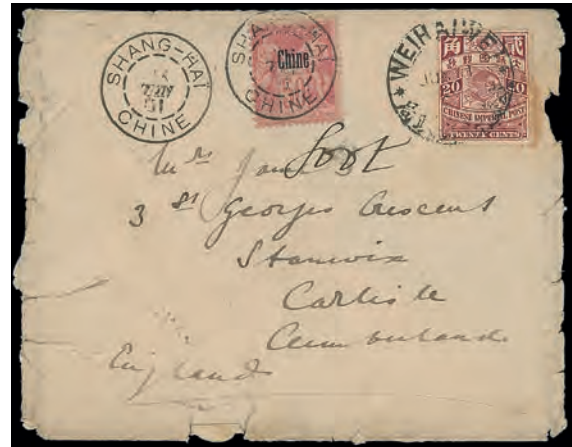 SHANG-HAI
CHINE
SHANG-HAI
CHINE
Chine
WEIHAIWEI
角 貳
20 20
CHINESE IMPERIAL POST
TWENTY CENTS
Mrs
3 St Georges Crescent
Stanwix
Carlisle
Cumberland
England